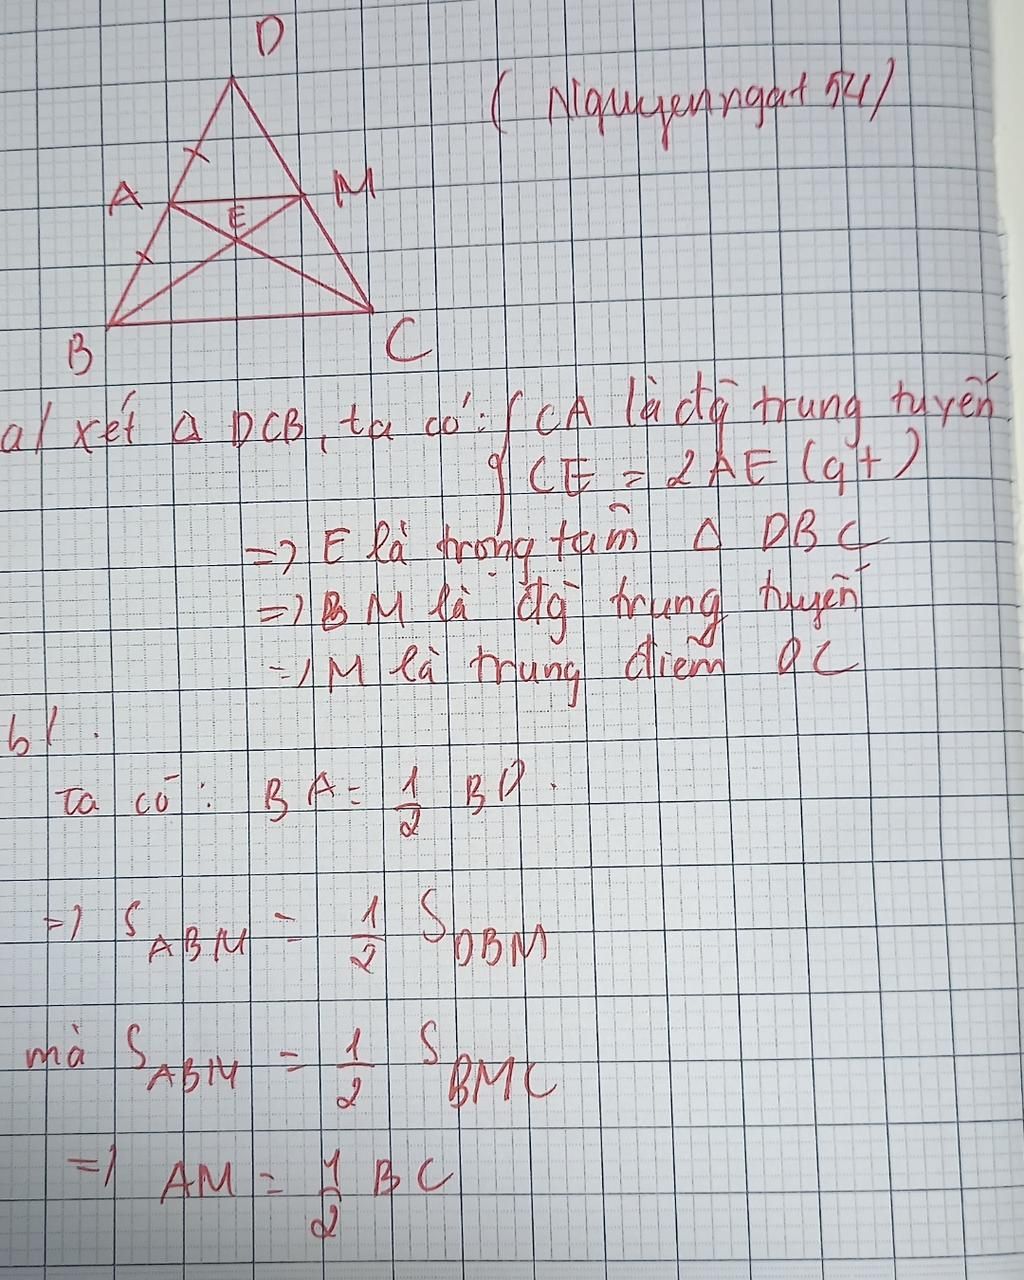 D
( Nguyenngat54)
A
M
E
B
C
a/ xét Δ DCB, ta có: { CA là đg trung tuyến
CE = 2AE (gt)
=> E là trọng tâm Δ DBC
=> BM là đg trung tuyến
=> M là trung điểm DC
b/.
Ta có: BA = 1/2 BD.
=> S ABM = 1/2 S DBM
mà S ABM = 1/2 S BMC
=> AM = 1/2 BC